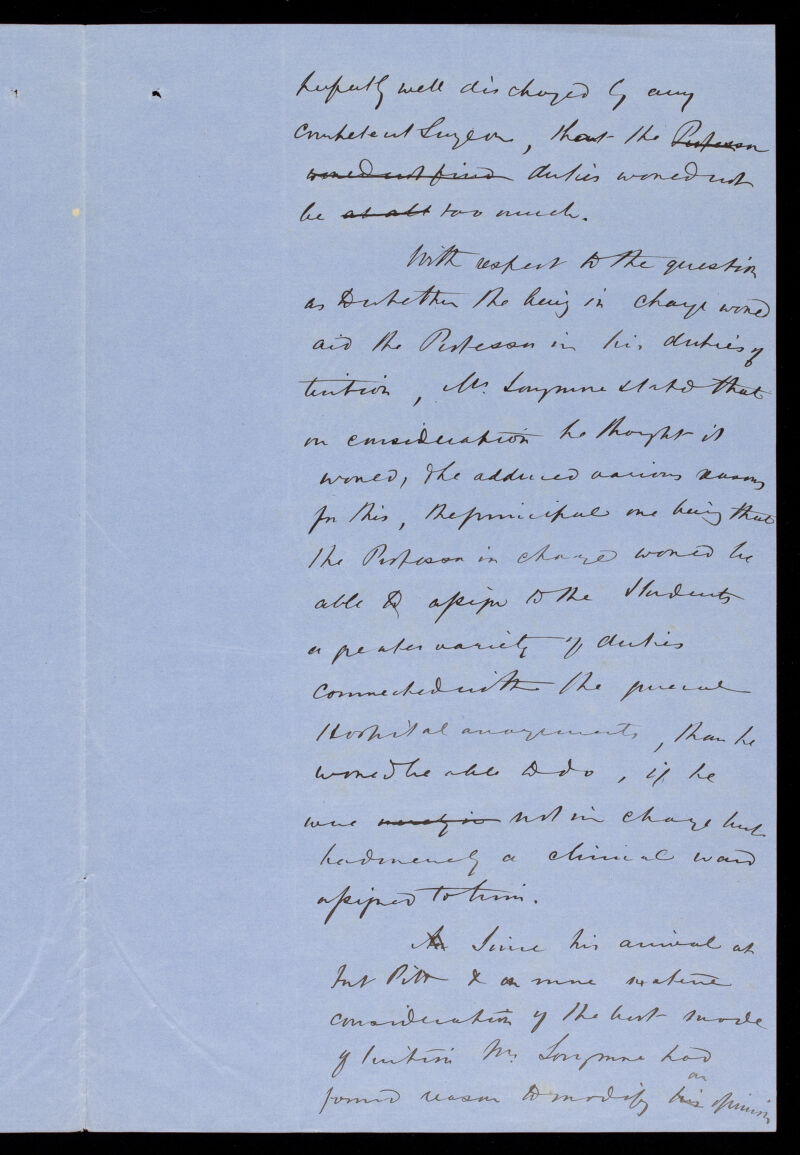 perfectly well discharged by any
competent Surgeon, that the Professor
would not find duties would not
be at all too much.
With respect to the question
as to whether the being in charge would
aid the Professor in his duties of
tuition, Mr. Longmore stated that
on consideration he thought it
would, & he adduced various reasons
for this, the principal one being that
the Professor in charge would be
able to assign to the Students
a greater variety of duties
connected with the general
Hospital arrangements, than he
would be able to do, if he
were merely in not in charge but
had merely a clinical ward
assigned to him.
Since his arrival at
Fort Pitt & on more mature
consideration of the best mode
of tuition Mr. Longmore had
found reason to modify his an opinion